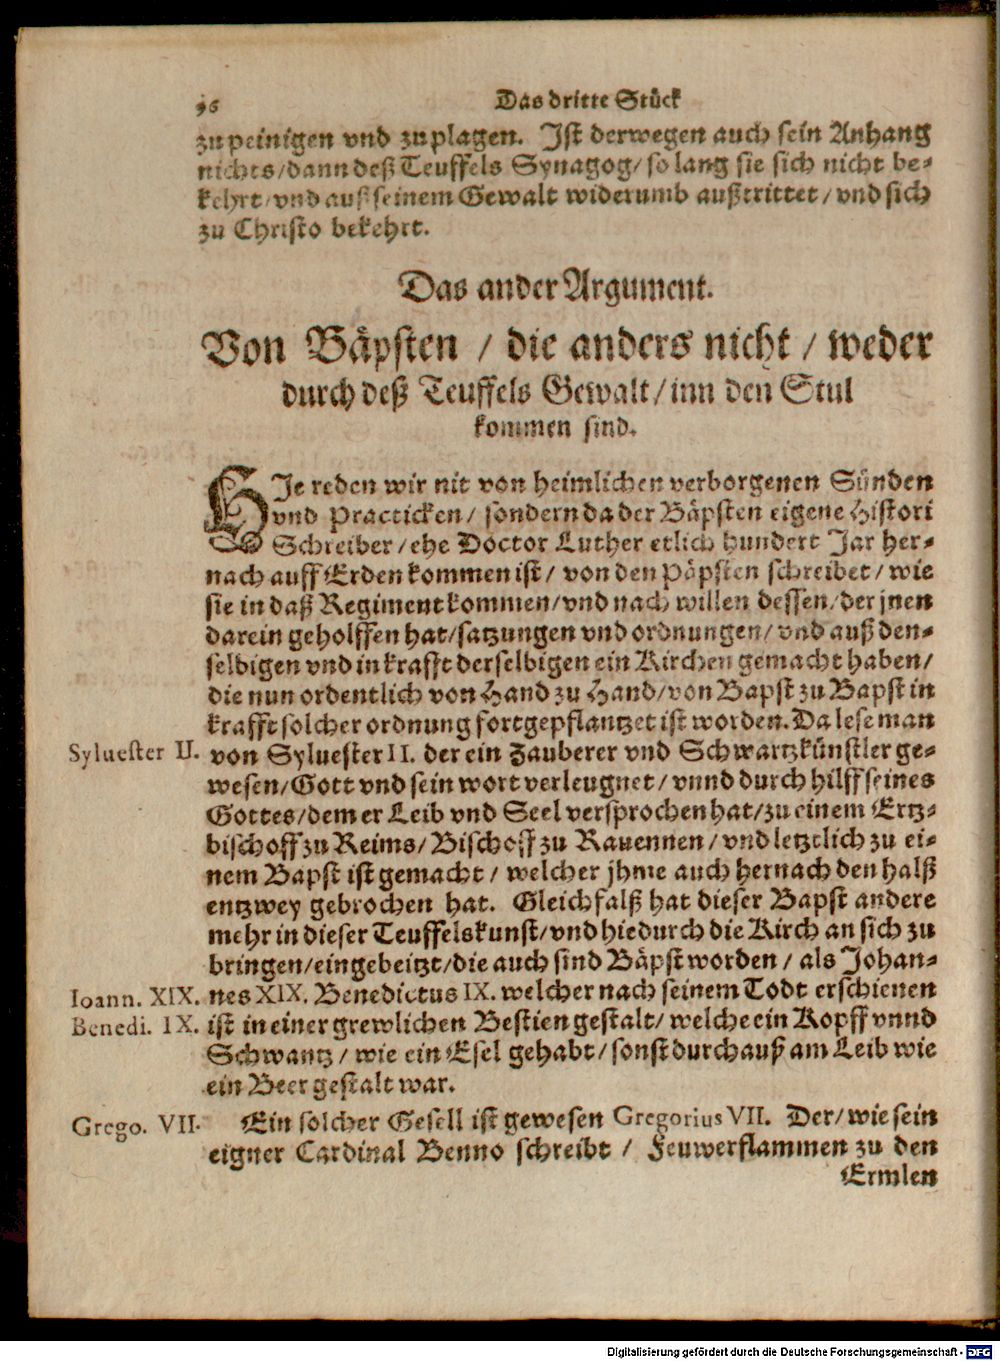 96
Das dritte Stück
zu peinigen vnd zu plagen. Ist derwegen auch sein Anhang
nichts/dann deß Teuffels Synagog/ so lang sie sich nicht be-
kehrt/vnd auß seinem Gewalt widerumb außtrittet/vnd sich
zu Christo bekehrt.
Das ander Argument.
Von Bäpsten / die anders nicht / weder
durch deß Teuffels Gewalt/inn den Stul
kommen sind.
HIe reden wir nit von heimlichen verborgenen Sünden
vnd Practicken/ sondern da der Bäpsten eigene Histori
Schreiber/ehe Doctor Luther etlich hundert Jar her-
nach auff Erden kommen ist/ von den Päpsten schreibet/ wie
sie in daß Regiment kommen/vnd nach willen dessen/der jnen
darein geholffen hat/satzungen vnd ordnungen/ vnd auß den-
selbigen vnd in krafft derselbigen ein Kirchen gemacht haben/
die nun ordentlich von Hand zu Hand/von Bapst zu Bapst in
krafft solcher ordnung fortgepflantzet ist worden. Da lese man
Syluester II. von Syluester II. der ein Zauberer vnd Schwartzkünstler ge-
wesen/Gott vnd sein wort verleugnet/ vnnd durch hilff seines
Gottes/dem er Leib vnd Seel versprochen hat/zu einem Ertz-
bischoff zu Reims/ Bischoff zu Rauennen/ vnd letztlich zu ei-
nem Bapst ist gemacht / welcher jhme auch hernach den halß
entzwey gebrochen hat. Gleichfalß hat dieser Bapst andere
mehr in dieser Teuffelskunst/vnd hiedurch die Kirch an sich zu
bringen/eingebeitzt/die auch sind Bäpst worden / als Johan-
Ioann. XIX. nes XIX. Benedictus IX. welcher nach seinem Todt erschienen
Benedi. IX. ist in einer grewlichen Bestien gestalt/ welche ein Kopff vnnd
Schwantz / wie ein Esel gehabt/sonst durchauß am Leib wie
ein Beer gestalt war.
Grego. VII. Ein solcher Gesell ist gewesen Gregorius VII. Der/wie sein
eigner Cardinal Benno schreibt / Feuwerflammen zu den
Ermlen
Digitalisierung gefördert durch die Deutsche Forschungsgemeinschaft - DFG